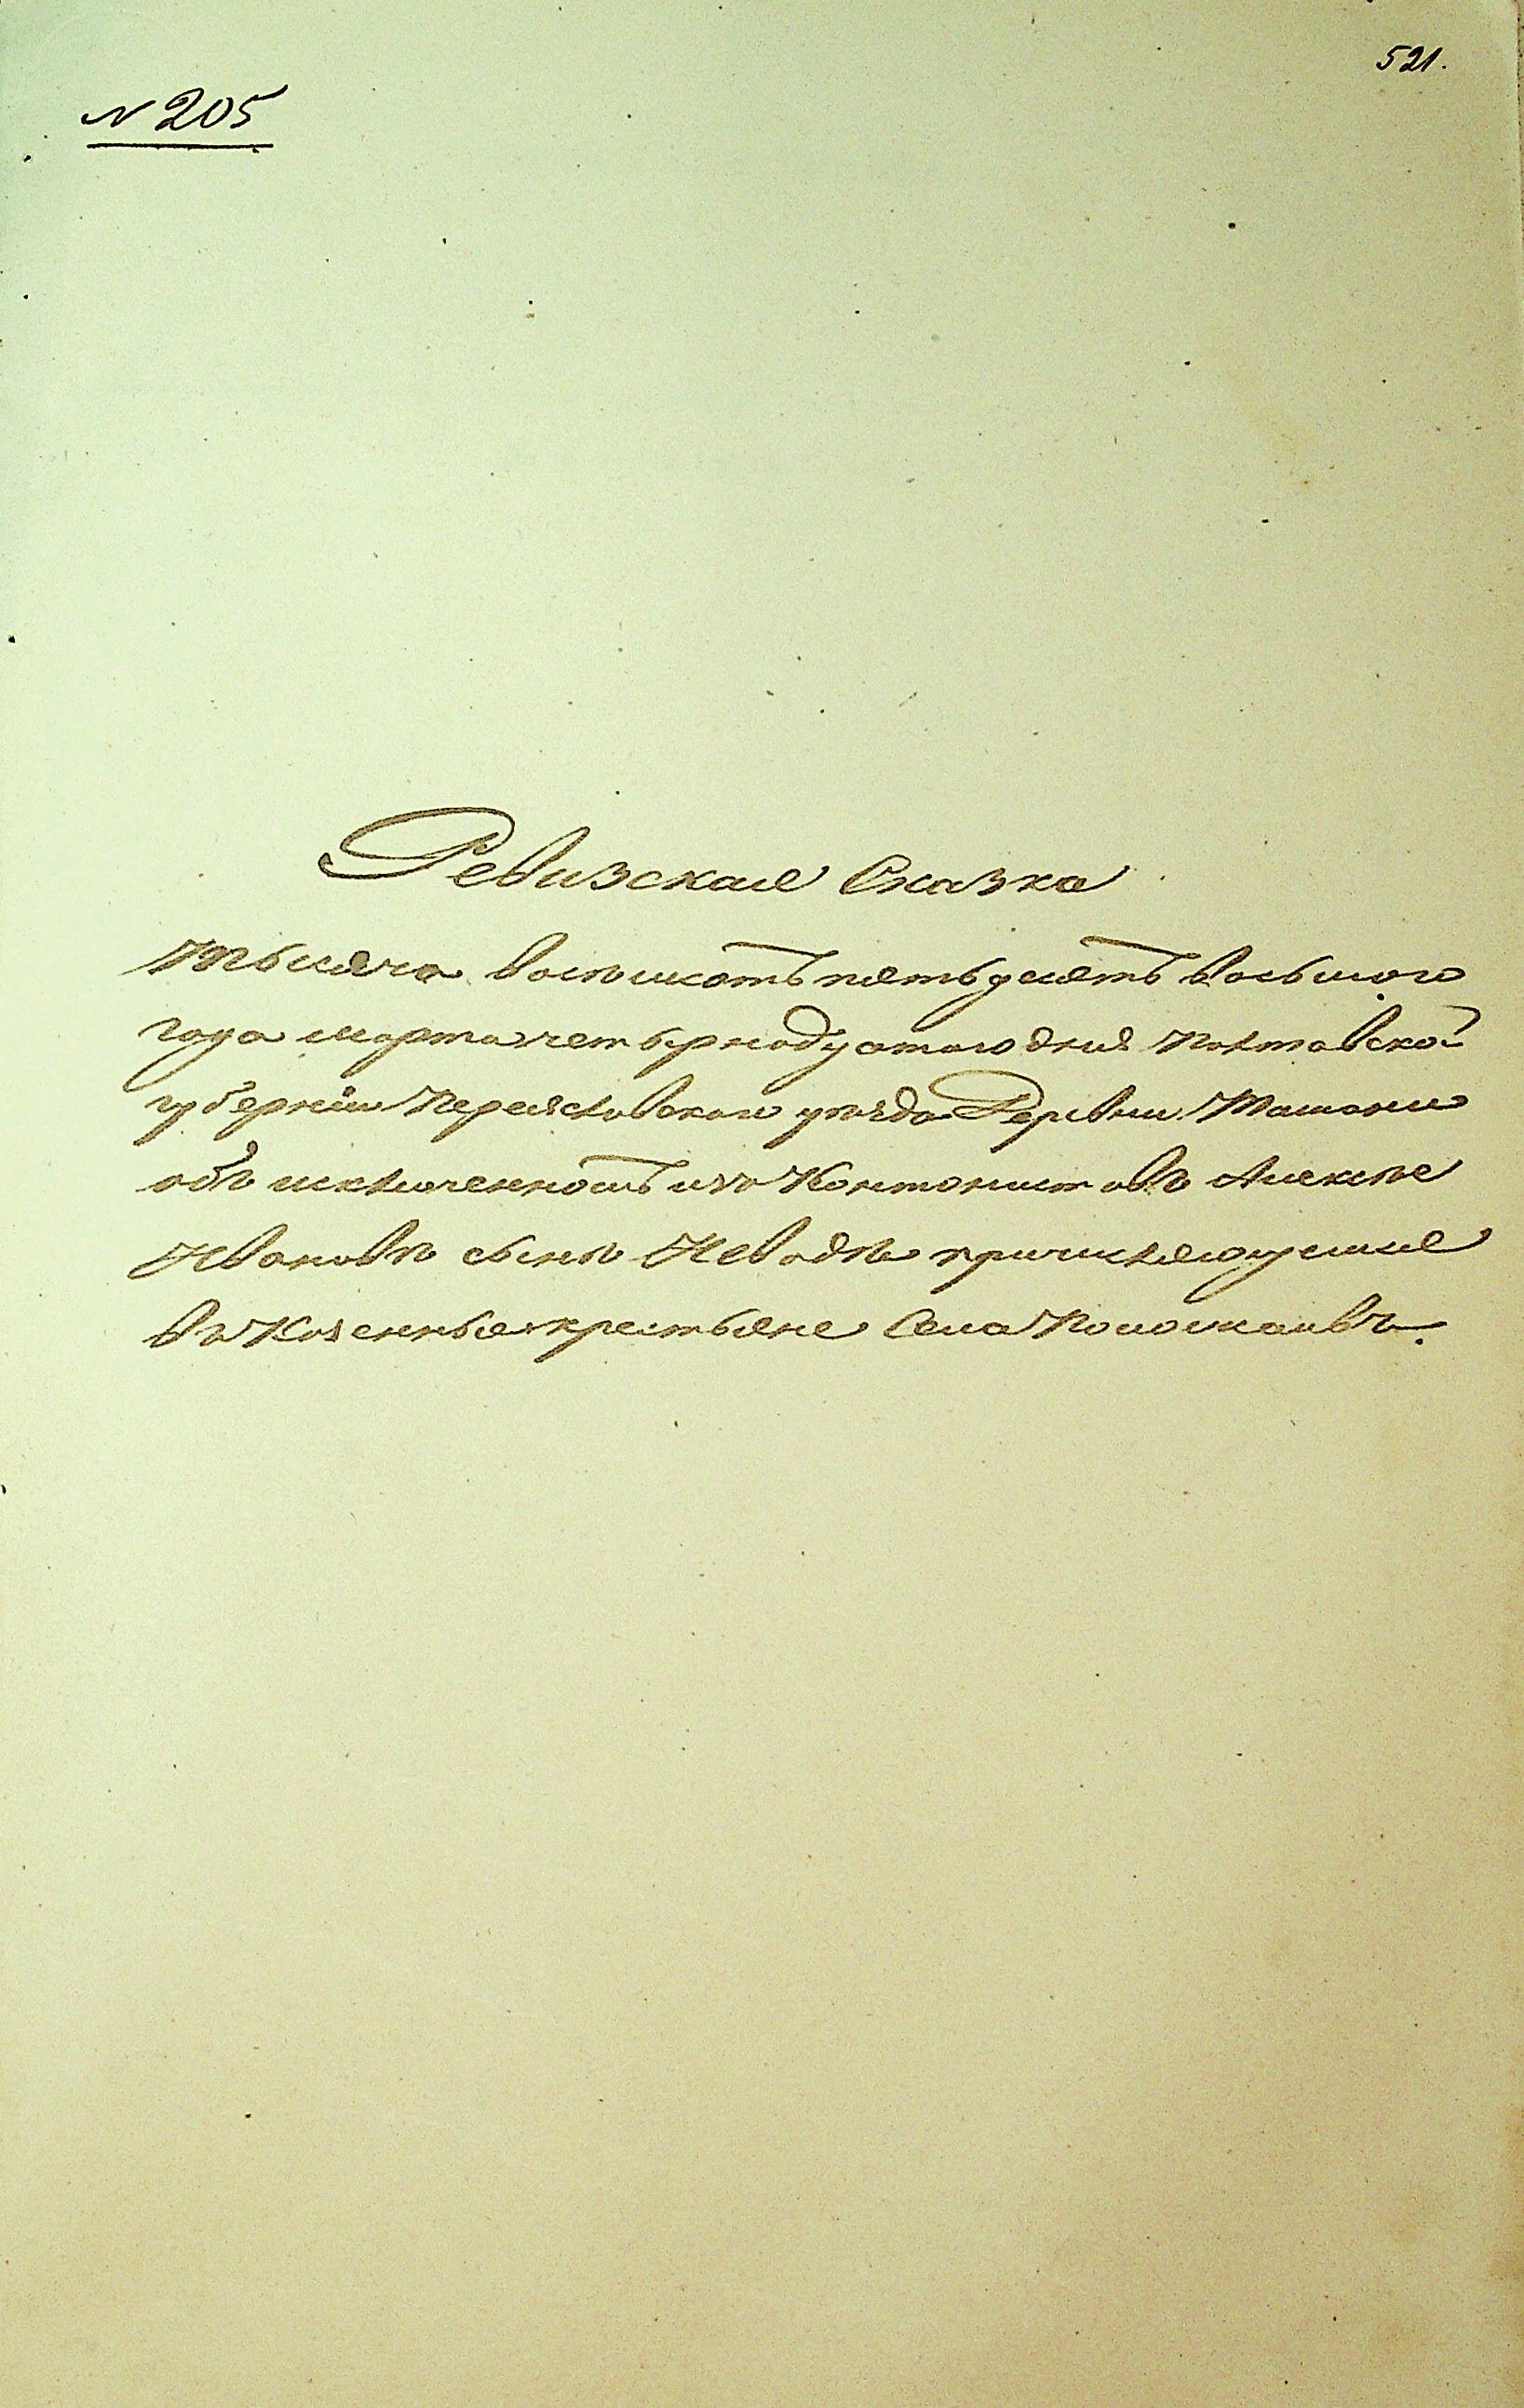 521.
№ 205
Ревизская Сказка
Тысяча восемъсотъ пятьдесятъ восьмого
года марта четырнадцатого дня Полтавской
губерніи Переяславскаго уезда Деревни Ташани
объ исключенномъ изъ Кантонистовъ Алексѣе
Ивановѣ сынѣ Неводѣ причисляющемся
въ Казенные крестьяне Села Помоклывъ.